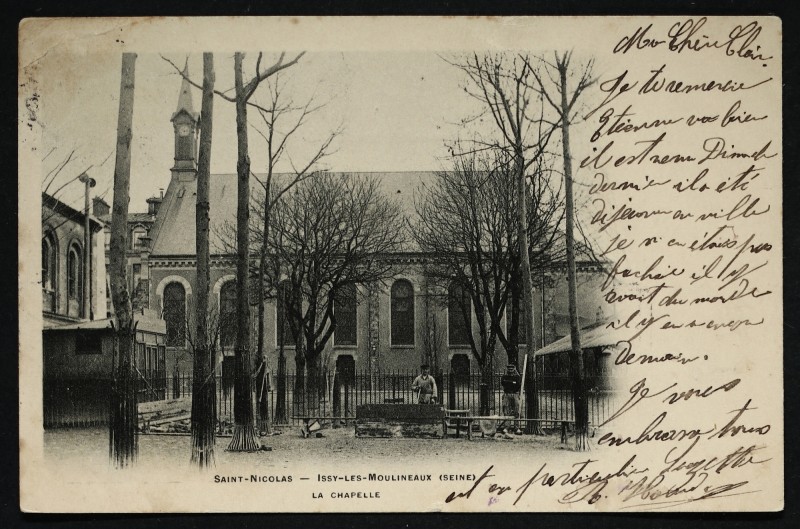 Mon Chèri Clair
Je te remercie
Etienne va bien
il est venu Dimanch
dernier il a été
déjeuner en ville
je n'en étais pas
fachée il y
avait du monde
il y en a encore
Demain.
Je vous
embrasse tous
et en particulier Suzette
SAINT-NICOLAS — ISSY-LES-MOULINEAUX (SEINE)
LA CHAPELLE